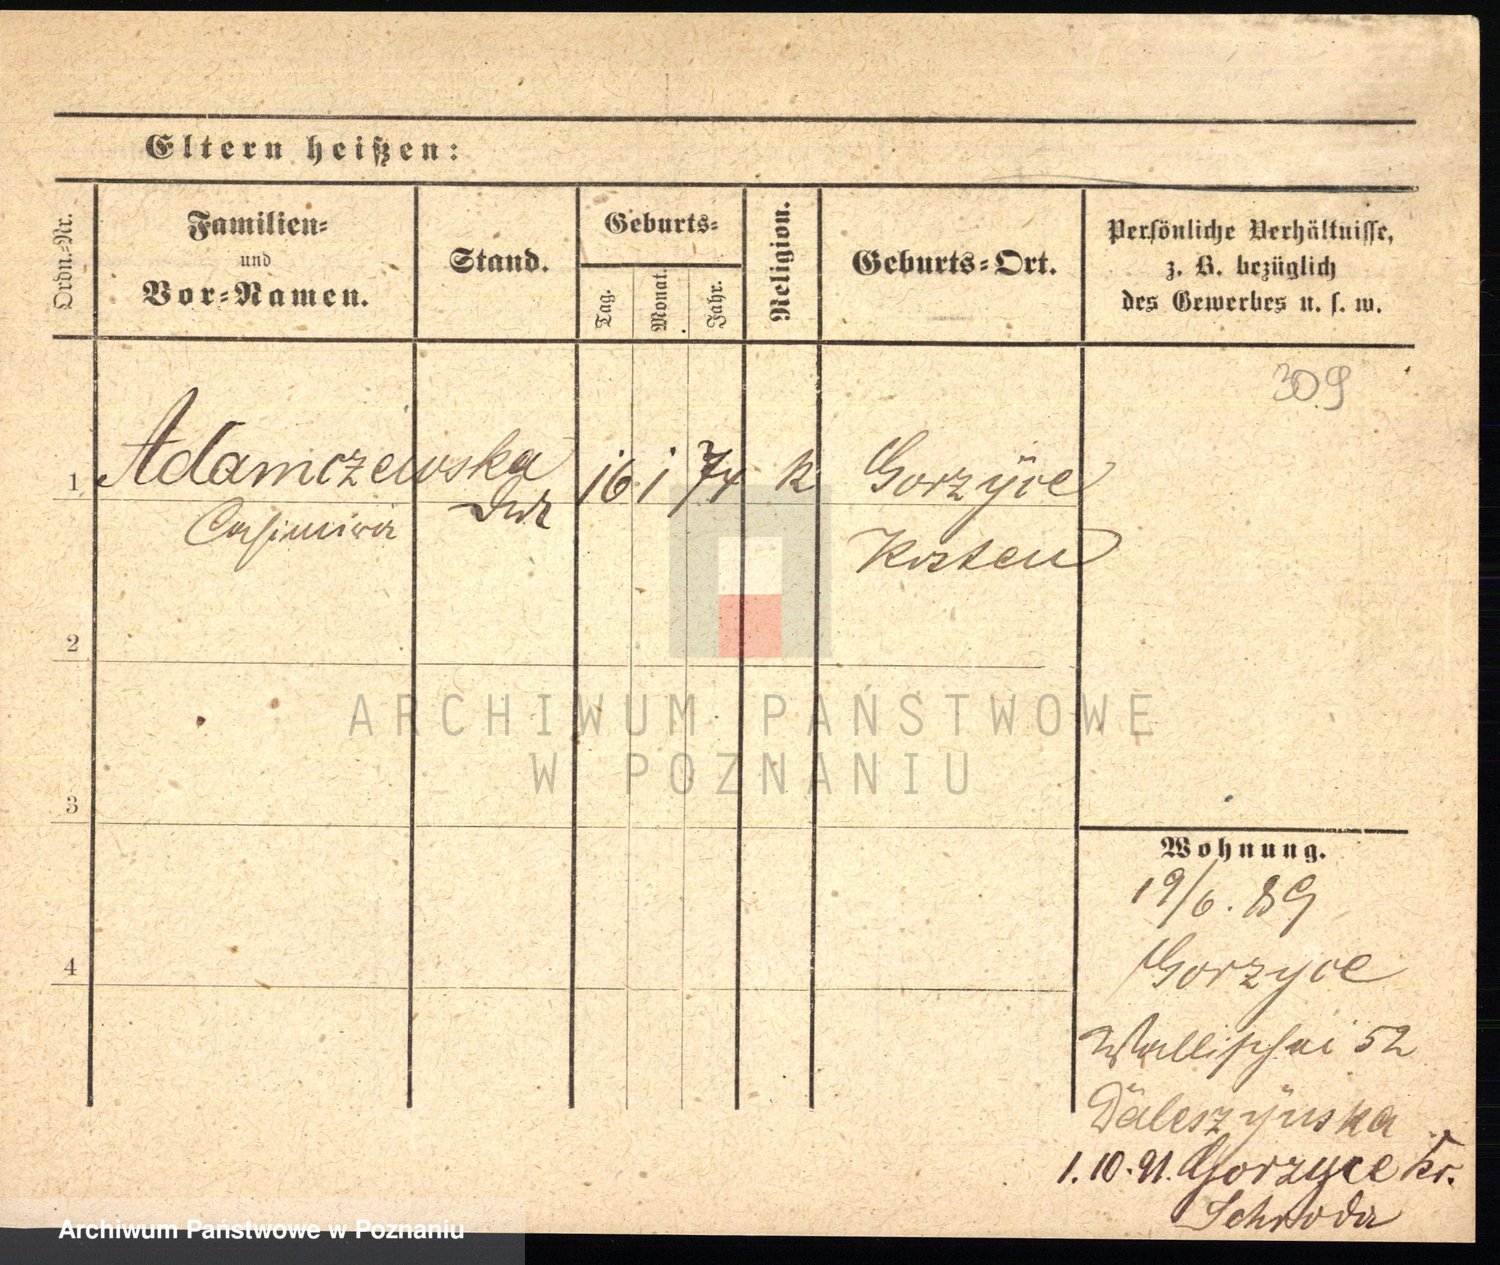 Eltern heißen:
Ordn.-Nr.
Familien-
und
Vor-Namen.
Stand.
Geburts-
Tag.
Monat.
Jahr.
Religion.
Geburts-Ort.
Persönliche Verhältnisse,
z. B. bezüglich
des Gewerbes u. s. w.
309
1 Adamczewska 16 1 74 k Gorzÿce
Casimira
Kosten
2
3
4
ARCHIWUM PAŃSTWOWE
W POZNANIU
Wohnung.
19/6. 89
Gorzyce
Wallischei 52
Daleszÿnska
1. 10. 91. Gorzyce Kr.
Schroda
Archiwum Państwowe w Poznaniu